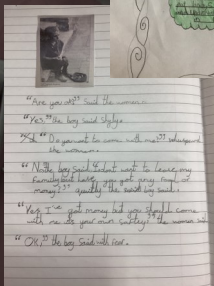 "Are you ok?" Said the woman.
"Yes," the boy said shyly.
"Do you want to come with me?" whispered
the woman.
"No the boy said I dont want to leave my
family have you got any food or
money?" quietly the boy said.
"Yes I've got money but you should come
with me as your own safety" the woman said
"OK," the boy said with fear.